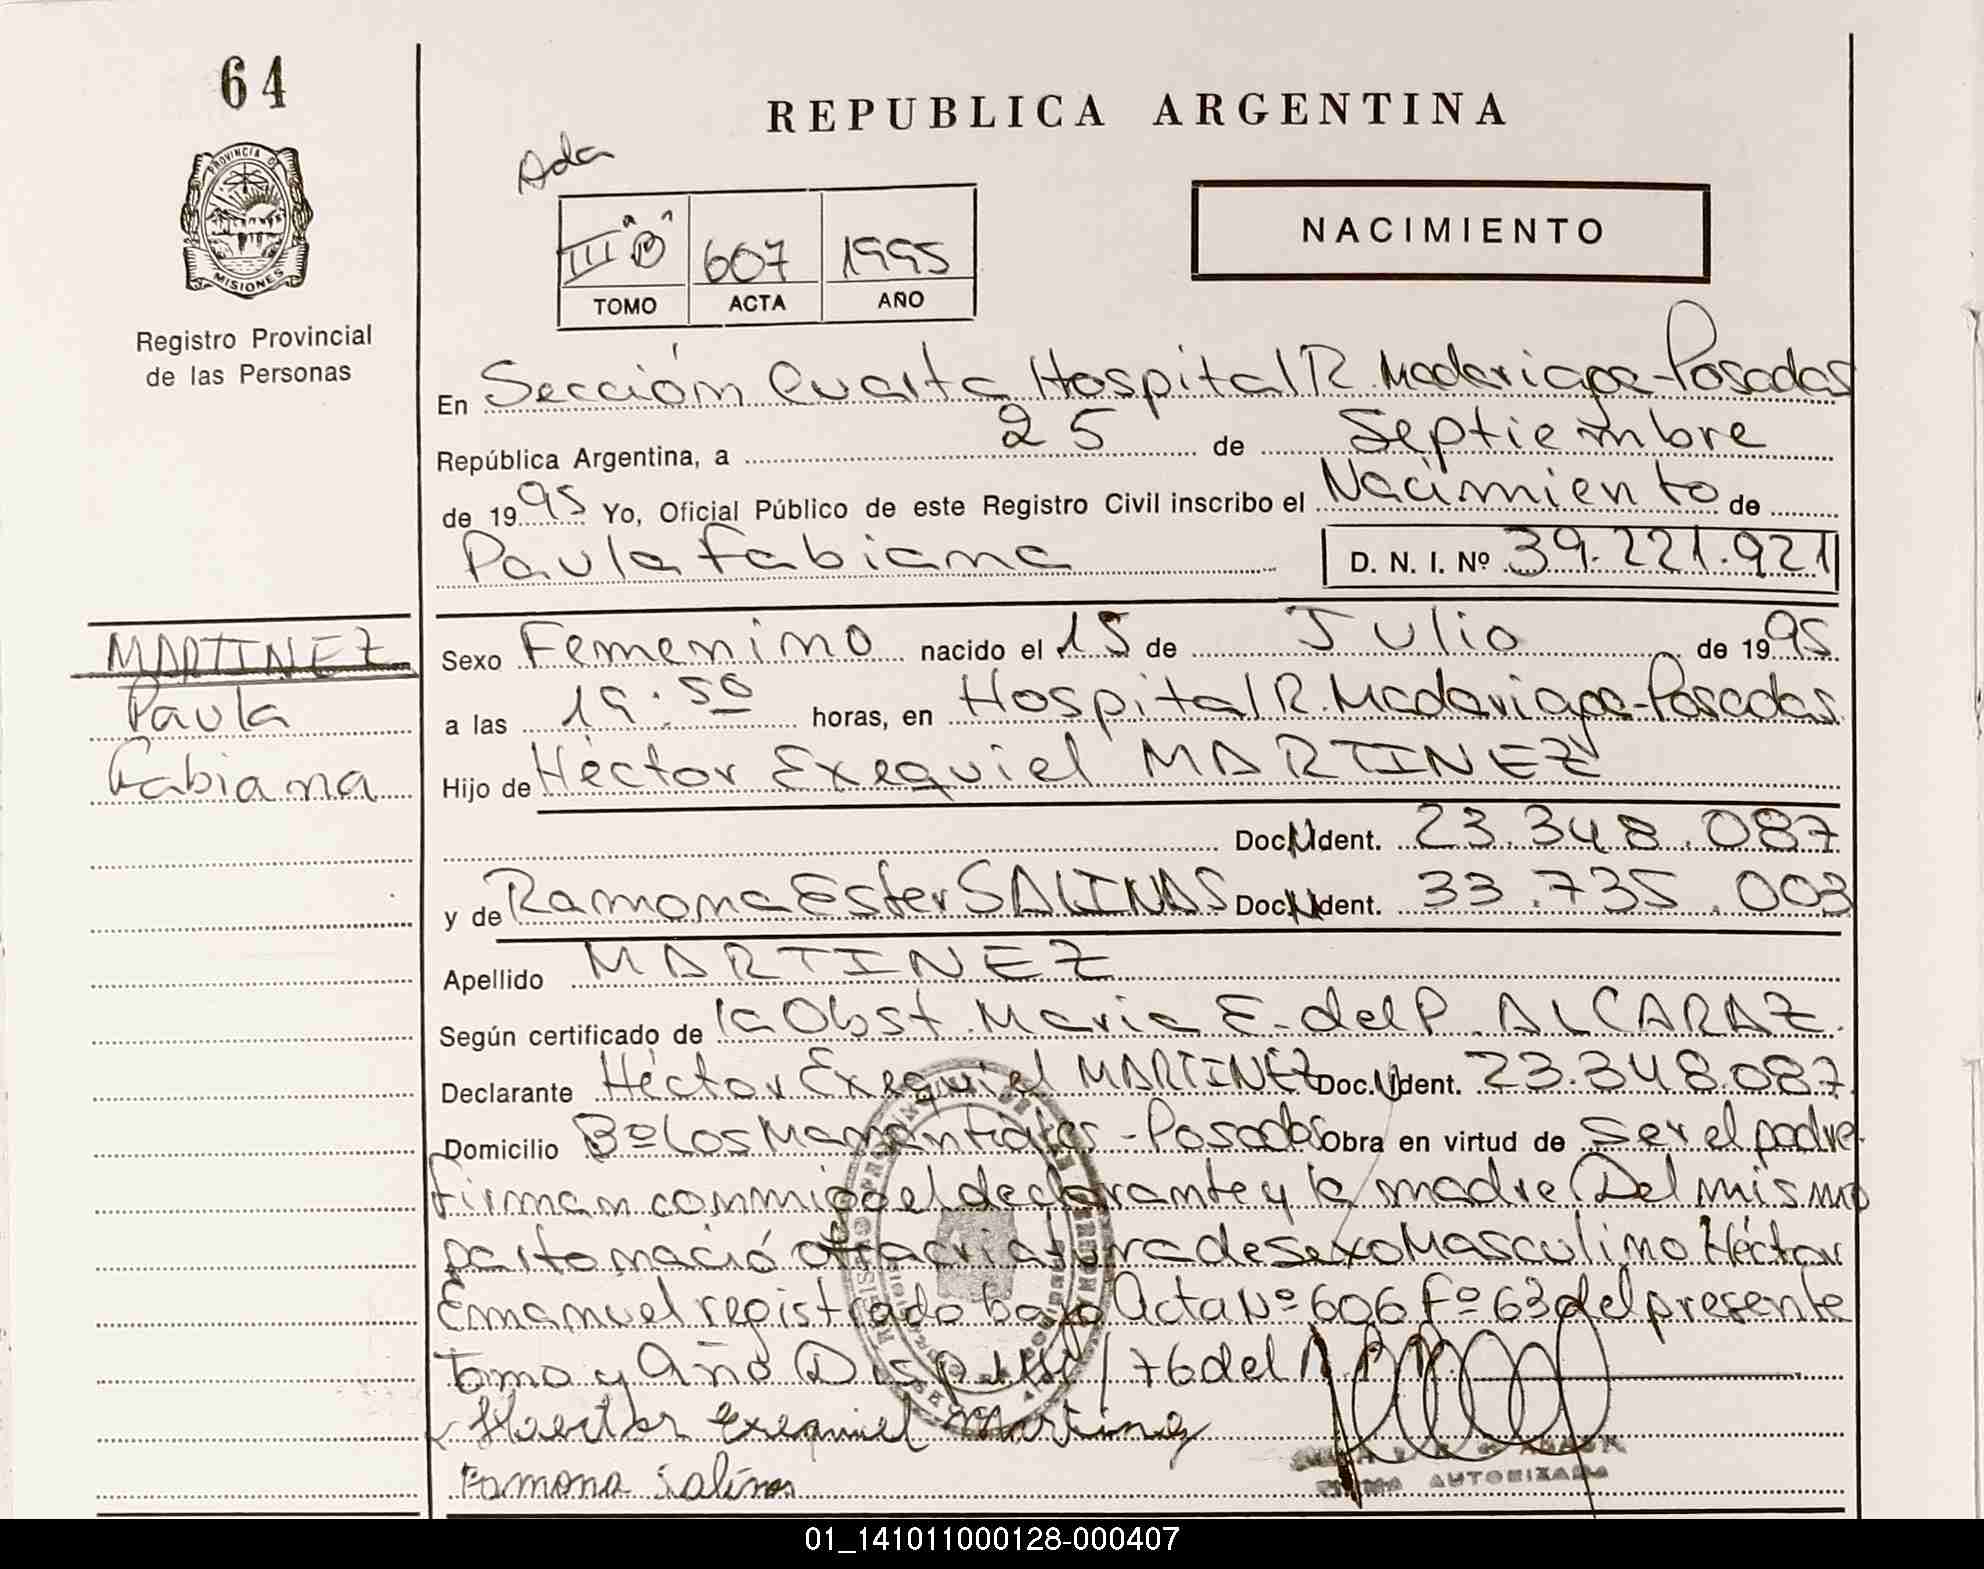 64
REPUBLICA ARGENTINA
PROVINCIA DE
MISIONES
Registro Provincial
de las Personas
Ada
III "B" 607 1995
TOMO ACTA AÑO
NACIMIENTO
En Sección Cuarta Hospital R. Madariaga-Posadas
República Argentina, a 25 de Septiembre
de 1995 Yo, Oficial Público de este Registro Civil inscribo el Nacimiento de
Paula Fabiana D. N. I. Nº 39.221.921
MARTINEZ
Paula
Fabiana
Sexo Femenino nacido el 15 de Julio de 1995
a las 19:50 horas, en Hospital R. Madariaga-Posadas
Hijo de Héctor Exequiel MARTINEZ
Doc. N Ident. 23.348.087
y de Ramona Ester SALINAS Doc. N Ident. 33.735.003
Apellido MARTINEZ
Según certificado de la Obst. Maria E. del P. ALCARAZ
Declarante Héctor Exequiel MARTINEZ Doc. U Ident. 23.348.087
Domicilio Bº Los Manantiales - Posadas Obra en virtud de ser el padre
firman conmigo el declarante y la madre. Del mismo
parto nació otra criatura de sexo Masculino Héctor
Emanuel registrado bajo Acta Nº 606 Fº 63 del presente
tomo y Año Disp. /76 del
Hector Exequiel Martinez
Ramona Salinas
FIRMA AUTORIZADA
01_141011000128-000407